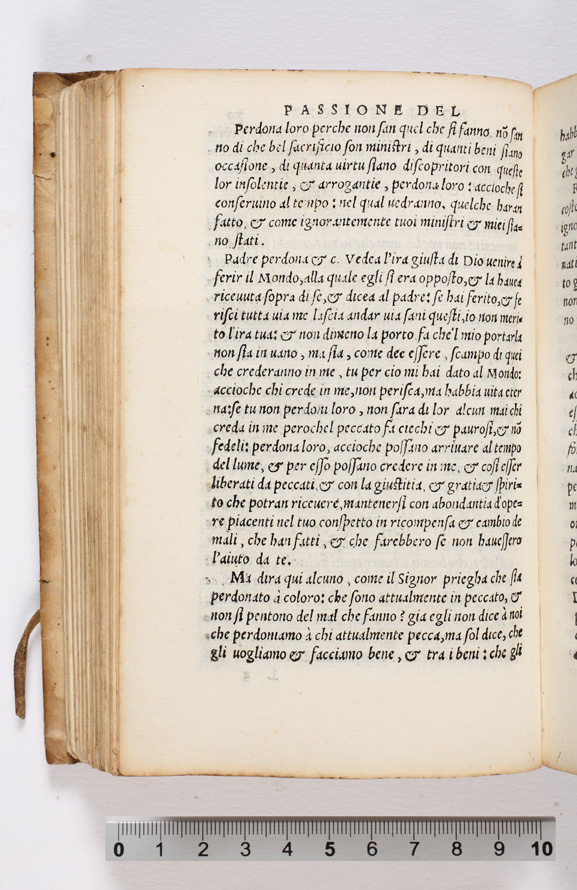 PASSIONE DEL
Perdona loro perche non san quel che si fanno, nõ san
no di che bel sacrificio son ministri, di quanti beni siano
occasione, di quanta uirtu siano discopritori con queste
lor insolentie, & arrogantie, perdona loro: accioche si
conseruino al tempo: nel qual uedranno, quelche haran
fatto, & come ignorantemente tuoi ministri & miei sia=
no stati.
Padre perdona & c. Vedea l'ira giusta di Dio uenire à
ferir il Mondo, alla quale egli si era opposto, & la hauea
riceuuta sopra di se, & dicea al padre: se hai ferito, & fe
risci tutta uia me lascia andar uia sani questi, io non meri=
to l'ira tua: & non dimeno la porto, fa che'l mio portarla
non sia in uano, ma sia, come dee essere, scampo di qui
che crederanno in me, tu per cio mi hai dato al Mondo:
accioche chi crede in me, non perisca, ma habbia uita eter
na: se tu non perdoni loro, non sara di lor alcun mai chi
creda in me perochel peccato fa ciechi & paurosi, & nõ
fedeli: perdona loro, accioche possano arriuare al tempo
del lume, & per esso possano credere in me, & cosi esser
liberati da peccati, & con la giustitia, & gratia & spiri=
to che potran riceuere, mantenersi con abondantia d'ope=
re piacenti nel tuo conspetto in ricompensa & cambio de
mali, che han fatti, & che farebbero se non hauessero
l'aiuto da te.
Ma dira qui alcuno, come il Signor priegha che sia
perdonato à coloro: che sono attualmente in peccato, &
non si pentono del mal che fanno? gia egli non dice à noi
che perdoniamo à chi attualmente pecca, ma sol dice, che
gli uogliamo & facciamo bene, & tra i beni: che gli
0 1 2 3 4 5 6 7 8 9 10